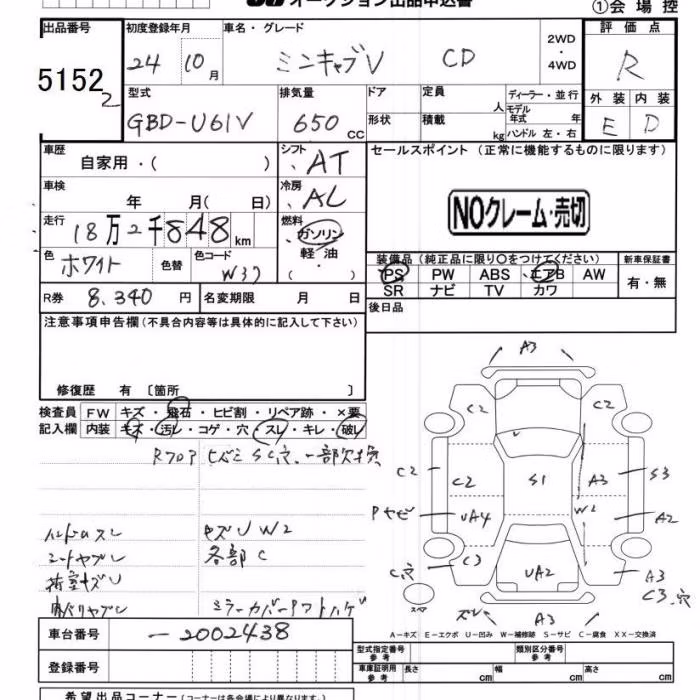 オークション出品申込書
①会場控
出品番号 初度登録年月 車名・グレード 2WD・4WD 評価点
5152 2 24 10月 ミニキャブV CD R
型式 排気量 ドア 定員 人 ディーラー・並行 外装 内装
GBD-U61V 650 CC 形状 積載 kg モデル年式 年 ハンドル 左・右 E D
車歴 シフト セールスポイント (正常に機能するものに限ります)
自家用・( ) AT
車検 冷房
年 月( 日) AL NOクレーム・売切
走行 燃料
18万2千848km ガソリン
軽油
( )
色 色替 色コード 装備品 (純正品に限り○をつけてください) 新車保証書
ホワイト W37 PS PW ABS エアB AW 有・無
SR ナビ TV カワ
R券 8,340円 名変期限 月 日 後日品
注意事項申告欄 (不具合内容等は具体的に記入して下さい)
修復歴 有 〔箇所 〕
検査員 FW キズ・飛石・ヒビ割・リペア跡・×要
記入欄 内装 キズ・汚レ・コゲ・穴・スレ・キレ・破レ
Rフロア ヒズミ SC穴、一部欠損
ハンドルスレ キズU W2
シートヤブレ 各部C
荷室キズU
内バリヤブレ ミラーカバーソフトハゲ
A3
C2 C2
C2 C2 S1 A3 S3
Pサビ UA4 W2 A2
C穴 C3 UA2 A3
C3.穴
スペア ズレ A3
A-キズ E-エクボ U-凹み W-補修跡 S-サビ C-腐食 XX-交換済
車台番号 -2002438
型式指定番号 参考 類別区分番号 参考
登録番号 車庫証明用 参考 長さ cm 幅 cm 高さ cm
希望出品コーナー (コーナーは各会場により異なります。)